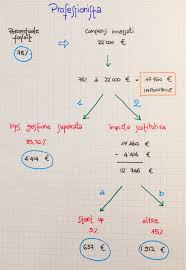 Professionista
Percentuale forfait
78%
Compensi incassati
22000 €
78% di 22000 € = 17160 €
IMPONIBILE
1
2
Inps gestione separata
25,72%
4414 €
Imposta sostitutiva
17160 -
- 4414 €
12746 €
a
b
Start up
5%
637 €
altre
15%
1912 €